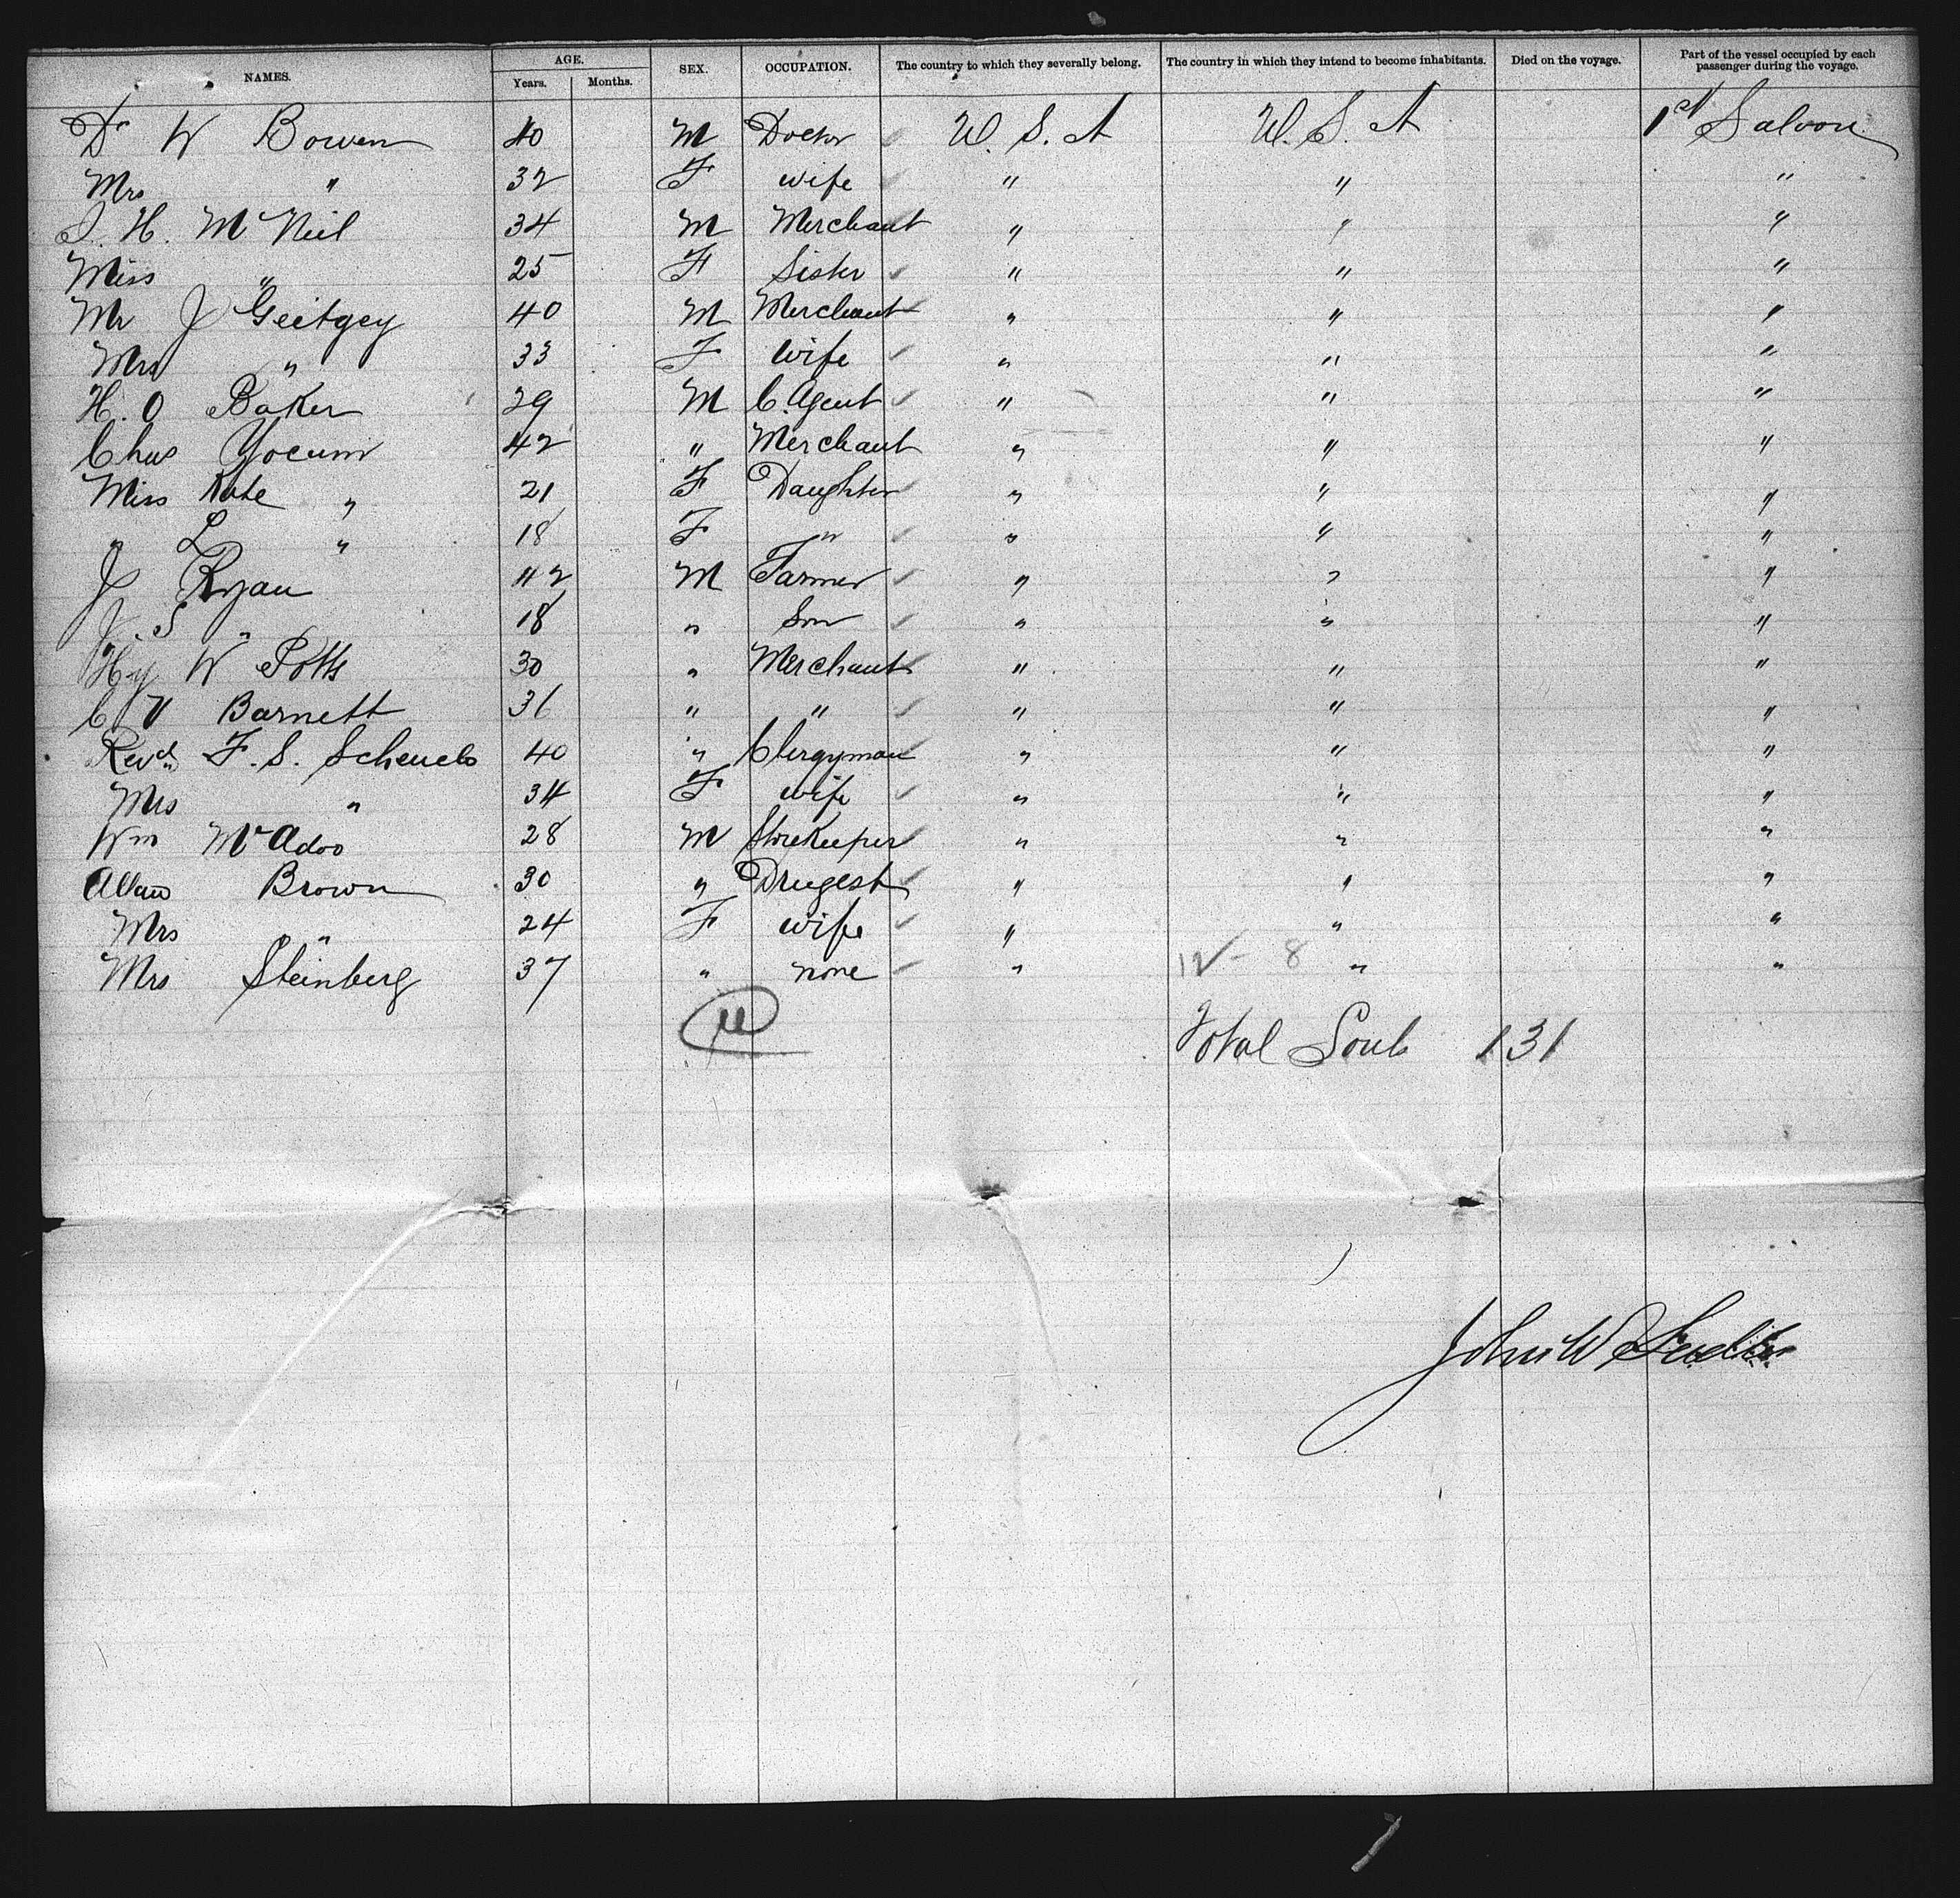 NAMES. AGE. Years. Months. SEX. OCCUPATION. The country to which they severally belong. The country in which they intend to become inhabitants. Died on the voyage. Part of the vessel occupied by each passenger during the voyage.
Dr W Bowen 40 M Doctor U.S.A U.S.A 1st Saloon
Mrs " 32 F wife " " "
J. H. McNeil 34 M Merchant " " "
Miss " 25 F Sister " " "
Mr J Geitgey 40 M Merchant " " "
Mrs " 33 F wife " " "
H. O Baker 29 M C. Agent " " "
Chas Yocum 42 " Merchant " " "
Miss Kate " 21 F Daughter " " "
" L " 18 F " " " "
J Ryan 42 M Farmer " " "
J. S " 18 " Son " " "
Hy W Potts 30 " Merchant " " "
C V Barnett 36 " " " " "
Revd F. S. 40 " Clergyman " " "
Mrs " 34 F wife " " "
Wm McAdoo 28 M Storekeeper " " "
Allan Brown 30 " Drugest " " "
Mrs " 24 F wife " " "
Mrs Steinberg 37 " none " 12 - 8 " "
Total Souls 131
John W